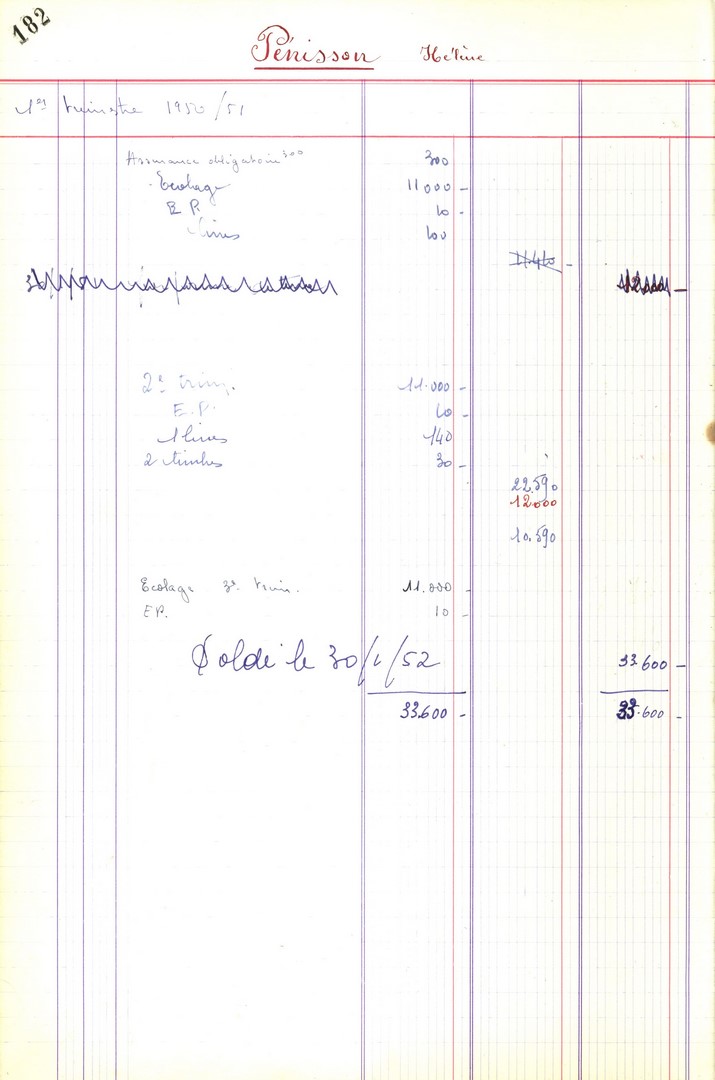 182
Pénisson Hélène
1er trimestre 1950/51
Assurance obligatoire 300 300
Ecolage 11000 -
E P. 10 -
livres
11.410 -
2e trim. 11.000 -
E.P. 10 -
1 livres 140
2 timbres 30 -
22.590
12000
10.590
Ecolage 3e trim. 11.000 -
EP. 10 -
Soldé le 30/1/52 33.600 -
33.600 - 33.600 -